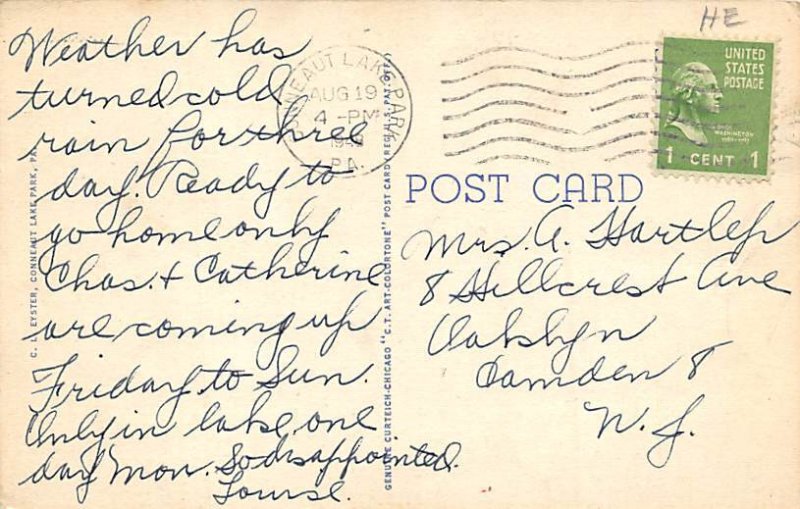 HE
Weather has
turned cold
rain for three
day. Ready to
go home only
Chas. + Catherine
are coming up
Friday to Sun.
Only in lake one
day Mon. So disappointed.
Louise.
CONNEAUT LAKE PARK
AUG 19
4 - PM
PA.
UNITED
STATES
POSTAGE
WASHINGTON
1 CENT 1
POST CARD
Mrs. A. Hartlep
8 Hillcrest Ave
Oaklyn
Camden 8
N. J.
C. L. EYSTER, CONNEAUT LAKE PARK, PA.
GENUINE CURTEICH-CHICAGO "C.T. ART-COLORTONE" POST CARD (REG. U.S. PAT. OFF.)